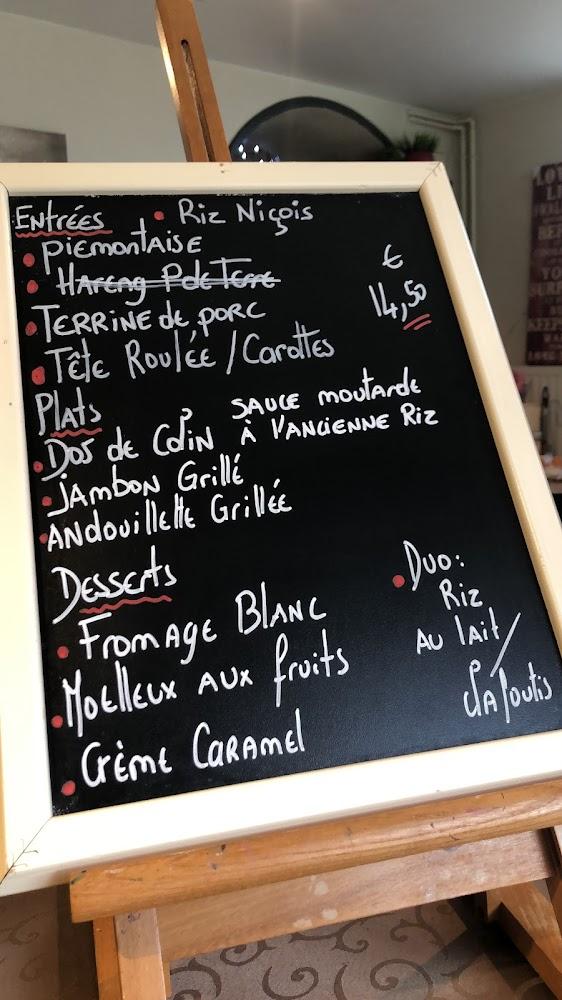 Entrées • Riz Niçois
• Piemontaise
• Hareng P de Terre
• Terrine de porc
€
14,50
• Tête Roulée / Carottes
Plats
• Dos de Colin sauce moutarde
à l'ancienne Riz
• Jambon Grillé
• Andouillette Grillée
Desserts
• Fromage Blanc
• Moelleux aux fruits
• Crème Caramel
• Duo:
Riz
au lait /